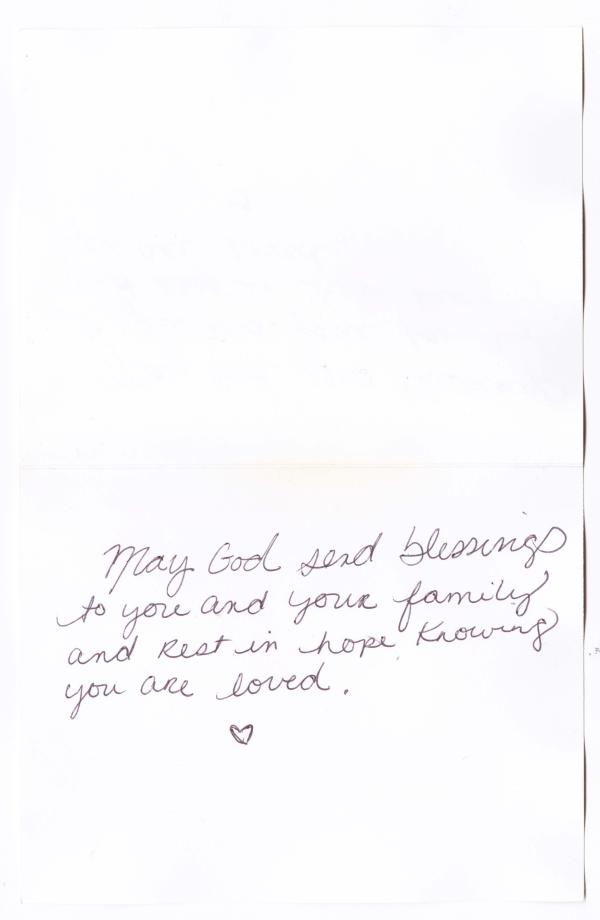 May God send blessings
to you and your family
and Rest in hope, Knowing
you are loved.
♡